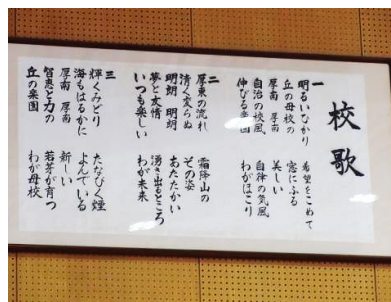 校歌
一
明るいひかり　希望をこめて
丘の母校の　窓にふる
厚南　厚南　美しい
自治の校風　自律の気風
伸びる楽園　わがほこり
二
厚東の流れ　霜降山の
清く変らぬ　その姿
明朗　明朗　あたたかい
夢と友情　湧き出るところ
いつも楽しい　わが未来
三
輝くみどり　たなびく煙
海もはるかに　よんでいる
厚南　厚南　新しい
智恵と力の　若芽が育つ
丘の楽園　わが母校